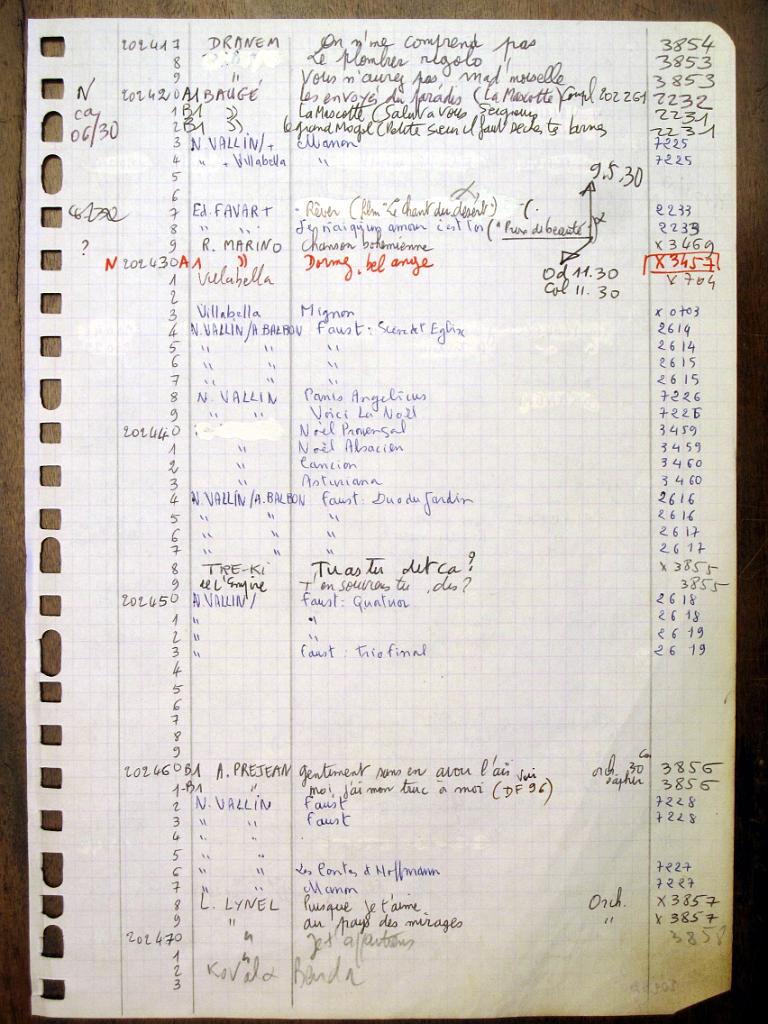 202417 DRANEM On n'me comprend pas 3854
8 Le plombier rigolo ! 3853
9 " Vous n'aurez pas mad'moiselle 3853
N 202420 A1 BAUGÉ Les envoyés du paradis (La Mascotte) Coupl. 202261 2232
ca 1 B1 " La Mascotte (Salut à vous Seigneur 2231
06/30 2 B1 " le grand Mogol (Petite sœur il faut sécher tes larmes 2231
3 N. VALLIN/+ Manon 7225
4 " + Villabella " 7225
5 9.5.30
6
7 Ed. FAVART - Rêver (film "Le Chant du désert") 2233
8 " " Je n'ai qu'un amour c'est toi ("Prix de beauté" 2233
? 9 R. MARINO Chanson bohémienne X 3469
N 202430 A1 " Dormez, bel ange X 3457
1 Villabella Od 11.30 X 704
2 Col 11.30
3 Villabella Mignon X 0703
4 N. VALLIN/A. BALBON Faust: Scène de l'Eglise 2614
5 " " " 2614
6 " " " 2615
7 " " " 2615
8 N. VALLIN Panis Angelicus 7226
9 " " Voici La Noël 7226
202440 Noël Provençal 3459
1 " Noël Alsacien 3459
2 " Cancion 3460
3 " Asturiana 3460
4 N. VALLIN/A. BALBON Faust: Duo du Jardin 2616
5 " " " 2616
6 " " " 2617
7 " " " 2617
8 TRE-KI Tu as tu dit ça? X 3855
9 de l'Empire T'en souviens tu, dis? 3855
202450 N. VALLIN/ Faust: Quatuor 2618
1 " " 2618
2 " " 2619
3 " Faust: Trio final 2619
4
5
6
7
8
9
202460 B1 A. PREJEAN gentiment sans en avoir l'air orch. 30 3856
1-B1 " moi, j'ai mon truc à moi (DF 96) 3856
2 N. VALLIN Faust 7228
3 " " Faust 7228
4 " "
5 " "
6 " " Les Contes d'Hoffmann 7227
7 " " Manon 7227
8 L. LYNEL Puisque je t'aime Orch. X 3857
9 " au pays des mirages " X 3857
202470 " 3858
1 "
2
3